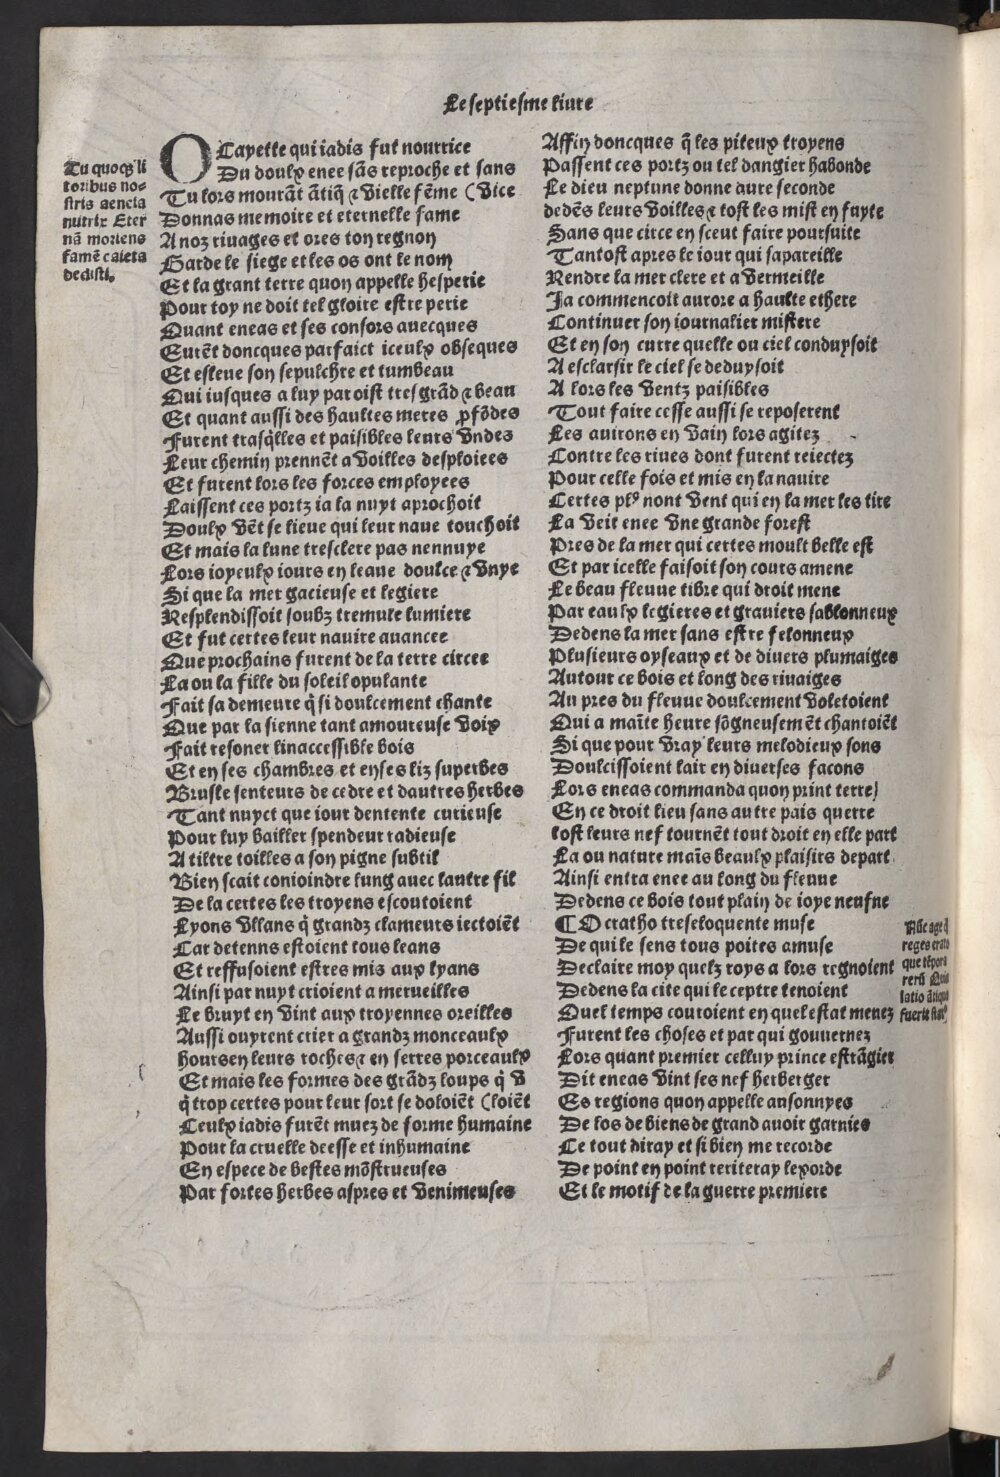 Le septiesme liure
Tu quoqȝ li
toribus no-
stris aeneia
nutrix Eter
nā moriens
famē caieta
dedisti.
O Cayette qui iadis fut nourrice
Du doulx enee sãs reproche et sans
Tu lors mourãt ãtiq̃ ⁊ vielle fẽme (vice
Donnas memoire et eternelle fame
A noz riuages et ores ton regnon
Garde le siege et les os ont le nom
Et la grant terre quon appelle hesperie
Pour toy ne doit tel gloire estre perie
Quant eneas et ses consors auecques
Eurẽt doncques parfaict iceulx obseques
Et esleue son sepulchre et tumbeau
Qui iusques a luy paroist tres grãd ⁊ beau
Et quant aussi des haultes meres ꝓfõdes
Furent trasq̃lles et paisibles leurs vndes
Leur chemin prennẽt a voilles desploiees
Et furent lors les forces employees
Laissent ces portz ia la nuyt aprochoit
Doulx vẽt se lieue qui leur naue touchoit
Et mais la lune tresclere pas nennuye
Lors ioyeulx iours en leaue doulce ⁊ vnye
Si que la mer gacieuse et legiere
Resplendissoit soubz tremule lumiere
Et fut certes leur nauire auancee
Que prochains furent de la terre circee
La ou la fille du soleil opulante
Fait sa demeure q̃ si doulcement chante
Que par la sienne tant amoureuse voix
Fait resoner linaccessible bois
Et en ses chambres et en ses liz superbes
Brusle senteurs de cedre et dautres herbes
Tant nuyct que iour dentente curieuse
Pour luy bailler spendeur radieuse
A tiltre toilles a son pigne subtil
Bien scait conioindre lung auec lautre fil
De la certes les troyens escoutoient
Lyons vllans q̃ grandz clameurs iectoiẽt
Car detenns estoient tous leans
Et reffusoient estres mis aux lyans
Ainsi par nuyt crioient a merueilles
Le bruyt en vint aux troyennes oreilles
Aussi ouyrent crier a grandz monceaulx
hours en leurs roches ⁊ en serres porceaulx
Et mais les formes des grãdz loups q̃ v
q̃ trop certes pour leur sort se doloiẽt (loiẽt
Ceulx iadis furẽt muez de forme humaine
Pour la cruelle deesse et inhumaine
En espece de bestes mõstrueuses
Par fortes herbes aspres et venimeuses
Affin doncques q̃ les piteux troyens
Passent ces portz ou tel dangier habonde
Le dieu neptune donne aure seconde
dedẽs leurs voilles ⁊ tost les mist en fuyte
Sans que circe en sceut faire poursuite
Tantost apres le iour qui sapareille
Rendre la mer clere et a vermeille
Ja commencoit aurore a haulte ethere
Continuer son iournalier mistere
Et en son curre quelle ou ciel conduysoit
A esclarsir le ciel se deduysoit
A lors les ventz paisibles
Tout faire cesse aussi se reposerent
Les auirons en vain lors agitez
Contre les riues dont furent reiectez
Pour celle fois et mis en la nauire
Certes plꝰ nont vent qui en la mer les tire
La veit enee vne grande forest
Pres de la mer qui certes moult belle est
Et par icelle faisoit son cours amene
Le beau fleuue tibre qui droit mene
Par eaulx legieres et grauiers sablonneux
Dedens la mer sans estre felonneux
Plusieurs oyseaux et de diuers plumaiges
Autour ce bois et long des riuaiges
Au pres du fleuue doulcement voletoient
Qui a maĩte heure sõgneusemẽt chantoiẽt
Si que pour vray leurs melodieux sons
Doulcissoient lair en diuerses facons
Lors eneas commanda quon print terre)
En ce droit lieu sans autre pais querre
tost leurs nef tournẽt tout droit en elle part
La ou nature maĩs beaulx plaisirs depart
Ainsi entra enee au long du fleuue
Dedens ce bois tout plain de ioye neufne
¶ O cratho treseloquente muse
De qui le sens tous poites amuse
Declaire moy quelz roys a lors regnoient
Dedens la cite qui le ceptre tenoient
Quel temps couroient en quel estat menez
Furent les choses et par qui gouuernez
Lors quant premier celluy prince estrãgier
Dit eneas vint ses nef herberger
Es regions quon appelle ausonnyes
De los de biens de grand auoir garnies
Ce tout diray et si bien me recorde
De point en point reciteray lexorde
Et le motif de la guerre premiere
Nũc age q̃
reges erato
que tẽpora
rerũ Quis
latio ãtiquo
fuerit statꝰ